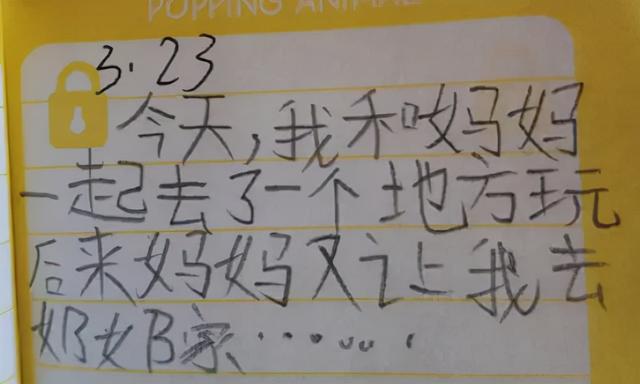 POPPING ANIMAL
3.23
今天,我和妈妈
一起去了一个地方玩
后来妈妈又让我去
奶奶家……